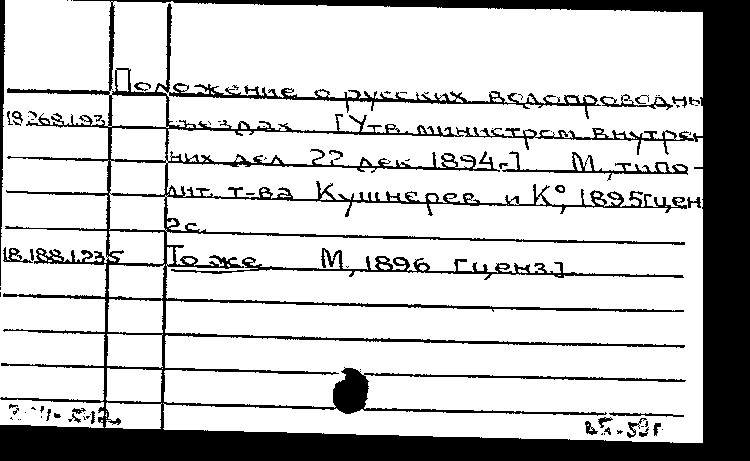 Положение о русских водопроводны
18.268.1.93 съездах [Утв. министром внутрен
них дел 22 дек 1894г.] М., типо-
лит. т-ва Кушнерев и К°, 1895[цен
2с.
18.188.1.235 То же М, 1896 [ценз]